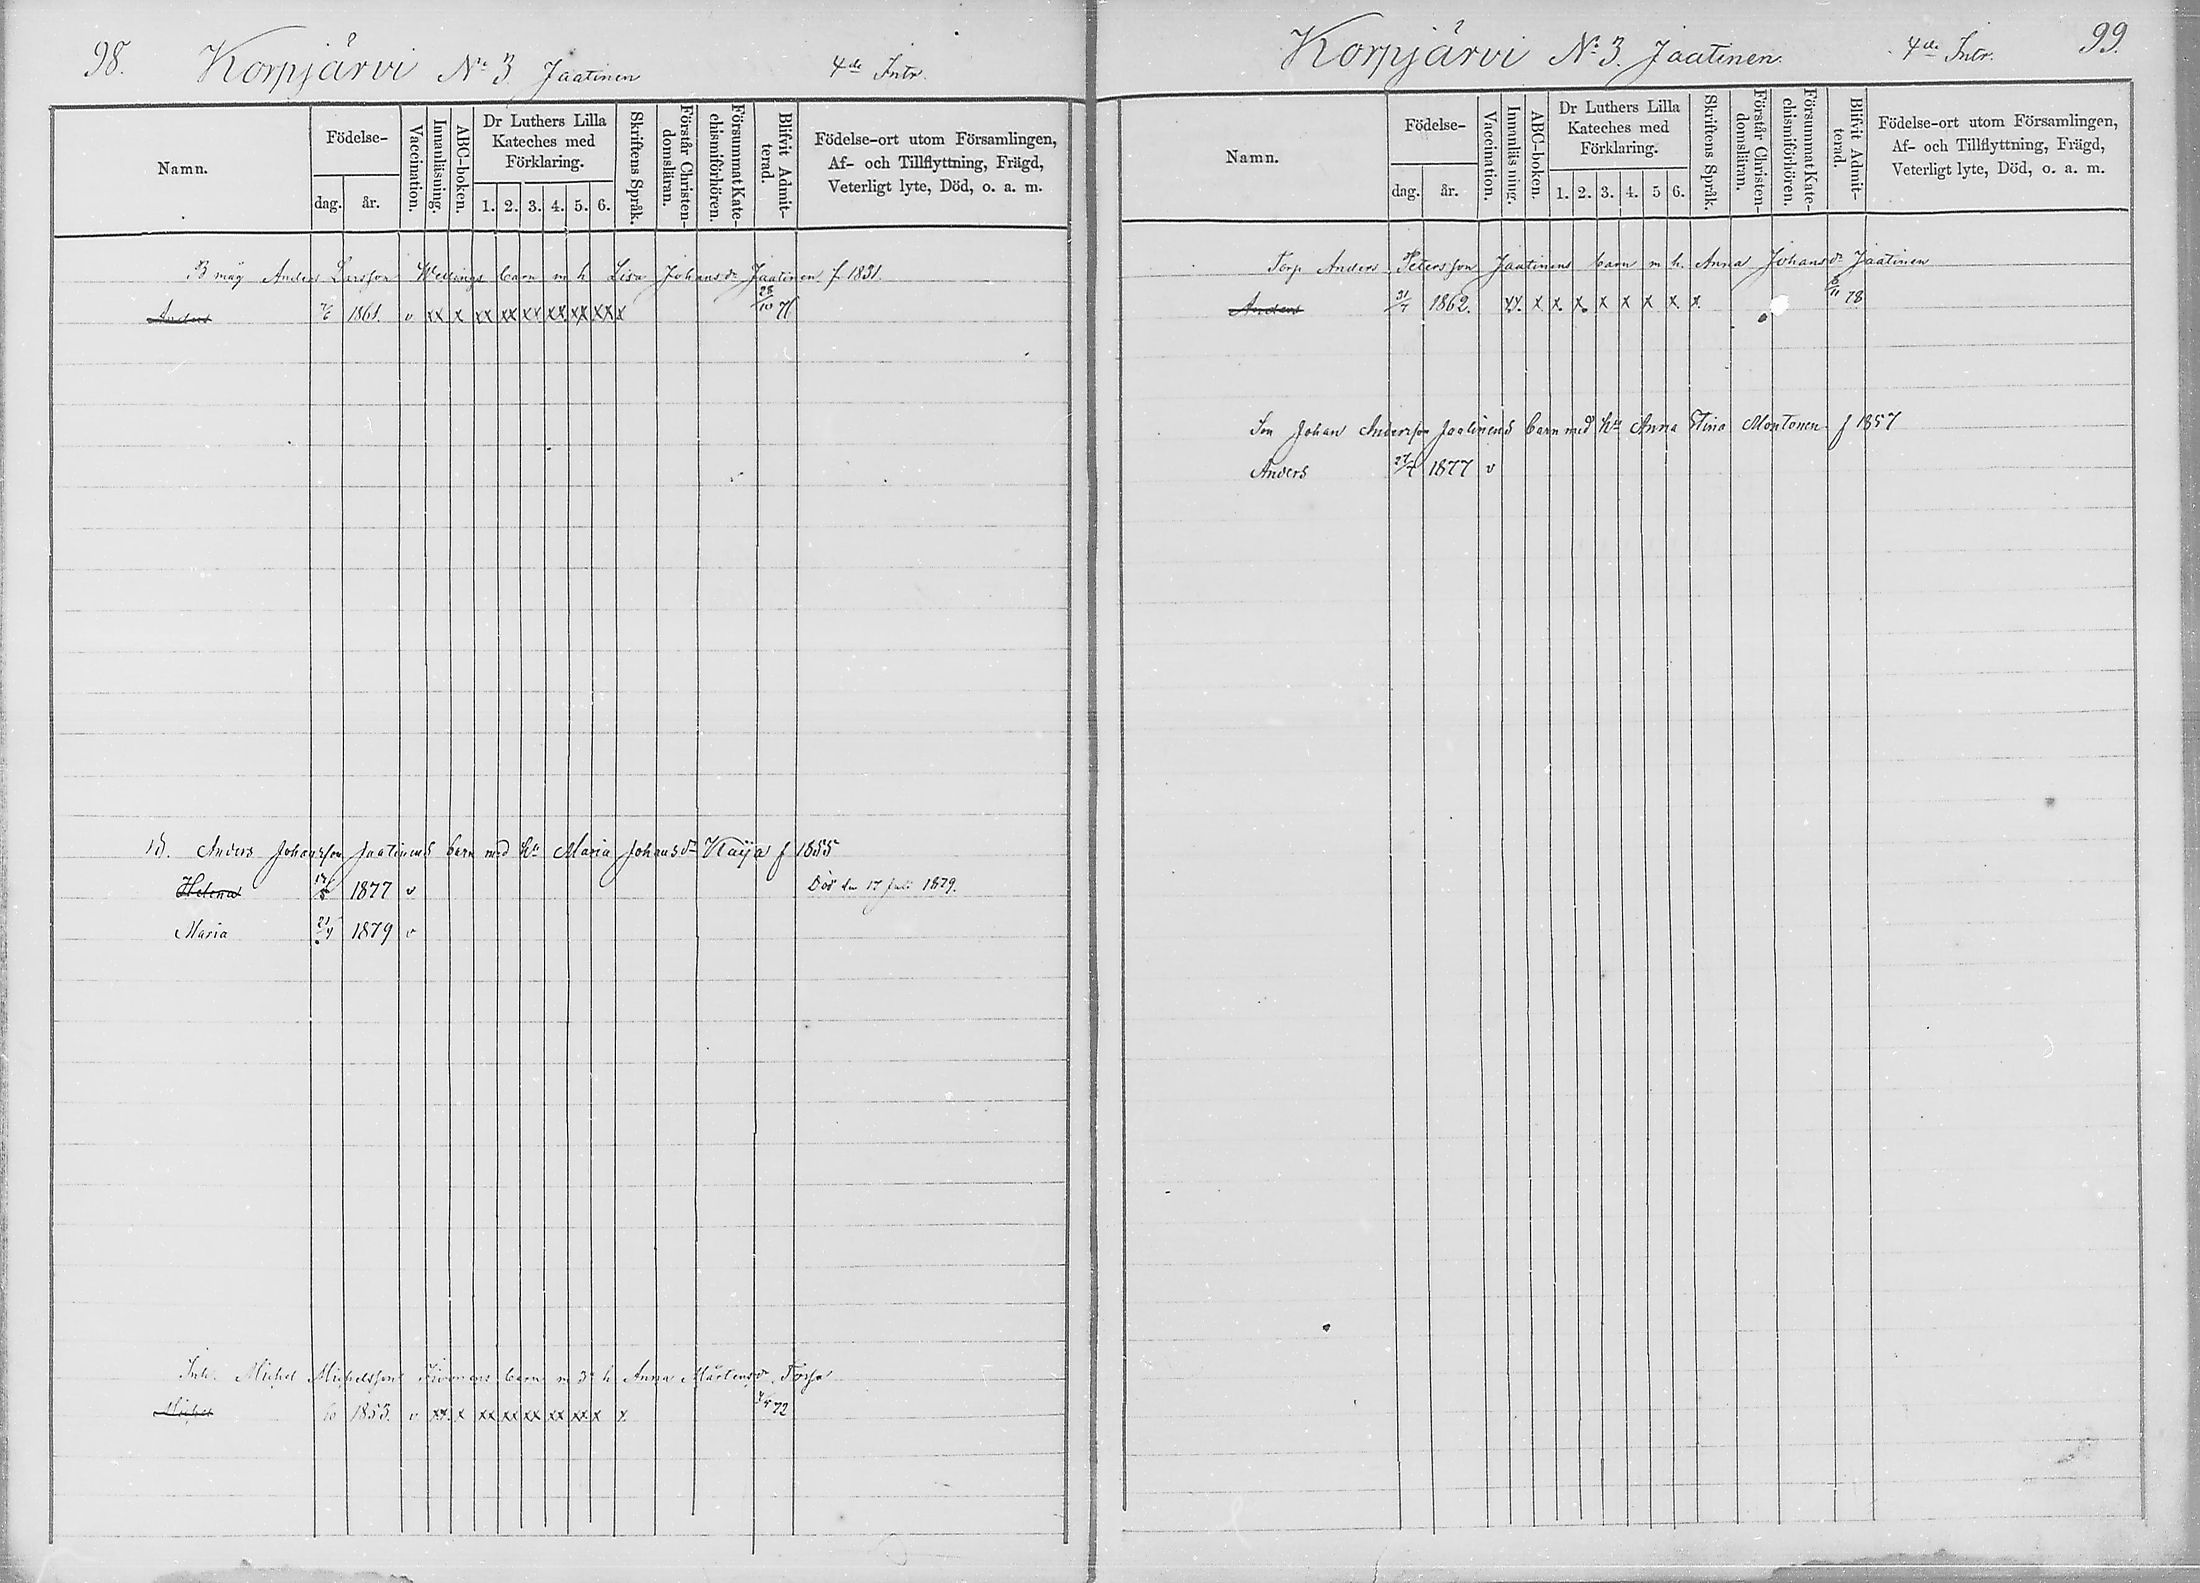 98. Korpjärvi No 3 Jaatinen 4de Intr.
Namn.
Födelse-
dag. år.
Vaccination.
Innanläsning.
ABC-boken.
Dr Luthers Lilla Kateches med Förklaring.
1. 2. 3. 4. 5. 6.
Skriftens Språk.
Förstår Christen-domsläran.
Försummat Kate-chismiförhören.
Blifvit Admit-terad.
Födelse-ort utom Församlingen, Af- och Tillflyttning, Frägd, Veterligt lyte, Död, o. a. m.
B måg Anders Larsson barn m h Lisa Johansdr Jaatinen f. 1831
Anders 1861. v xx x xx xx xx xx xx xx x 28/10 76
Anders Johansson Jaatinens barn med hu Maria Johansdr Kaija f 1855
Helena 1877 v Död den 17 Juli 1879.
Maria 1879 v
Inh. Michel Michelsson barn m 3e h Anna Mårtensdr Torsa
Michel 1855. v xx x xx xx xx xx xx x x 72
Korpjärvi No 3. Jaatinen 4de Intr. 99.
Namn.
Födelse-
dag. år.
Vaccination.
Innanläsning.
ABC-boken.
Dr Luthers Lilla Kateches med Förklaring.
1. 2. 3. 4. 5 6.
Skriftens Språk.
Förstår Christen-domsläran.
Försummat Kate-chismiförhören.
Blifvit Admit-terad.
Födelse-ort utom Församlingen, Af- och Tillflyttning, Frägd, Veterligt lyte, Död, o. a. m.
Torp Anders Petersson Jaatinens barn m h. Anna Johansdr Jaatinen
Anders 1862. xx. x x. x. x x x x x. 78
Son Johan Andersson Jaatinens barn med hu Anna Stina Montonen f 1857
Anders 1877 v